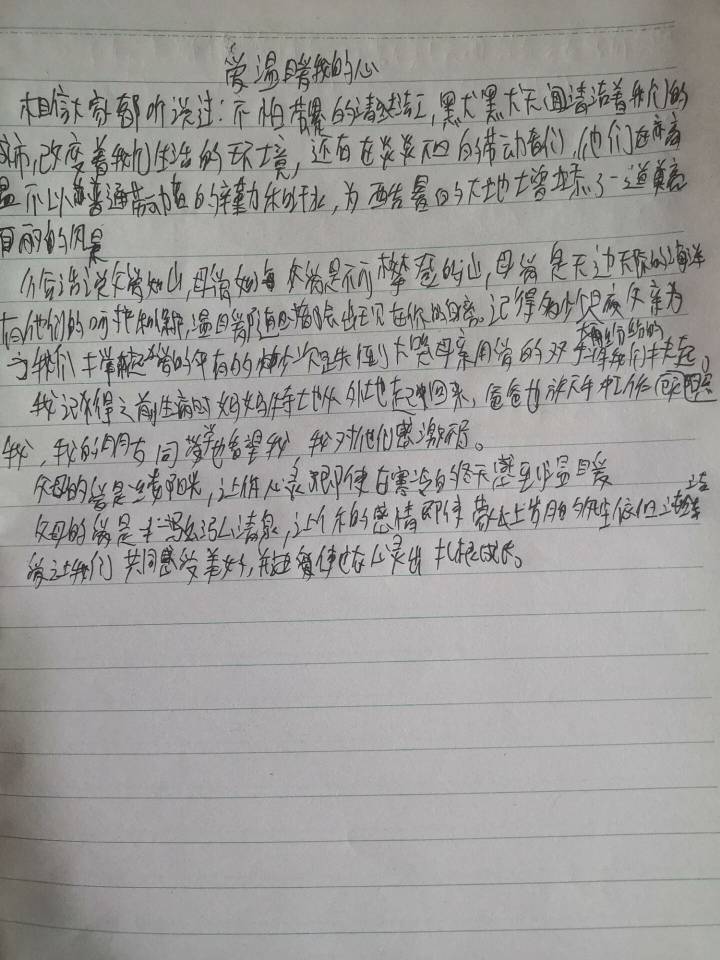 爱温暖我的心
相信大家都听说过:不怕劳累的清洁工,黑犬黑犬天面清洁着我们的
城市,改变着我们生活的环境,还有在炎炎烈日的劳动者们,他们在高
温下以普通劳动者的辛勤和汗水,为酷暑的大地增添了一道美
丽的风景
俗话说父爱如山,母爱如海 父爱是不可攀登的山,母爱是无边无际的海洋
有他们的呵护和,温暖随时会出现在你的身旁。记得多少只痕父亲为
了我们撑起有的多少次跌倒大哭母亲用爱的双手 我们扶起。
我记得之前生病时妈妈特地从外地赶回来,爸爸也放下手中工作照
我,我的朋友同学也看望我,我对他们感激不尽。
父母的爱是一缕阳光,让你心灵即使在寒冷的冬天感到温暖
父母的爱是一泓清泉,让你的感情即使蒙上岁月的依旧清
爱让我们共同感受美好,使它在心灵出扎根成长。